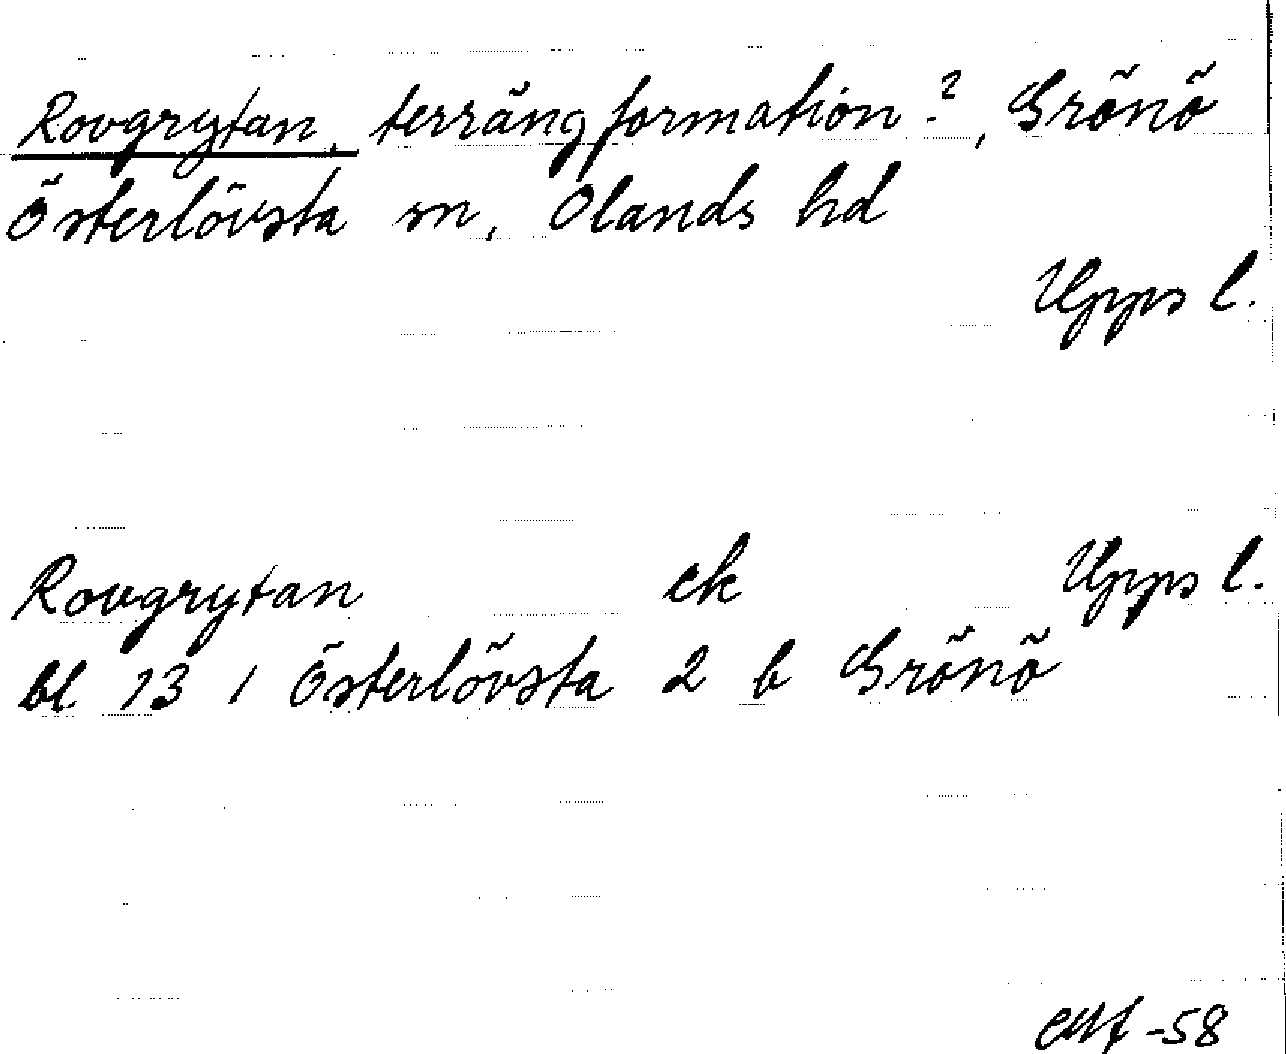 Rovgrytan, terrängformation?, Grönö
Österlövsta sn, Olands hd
Upps l.
Rovgrytan ek Upps l.
bl. 13 i Österlövsta 2 b Grönö
-58